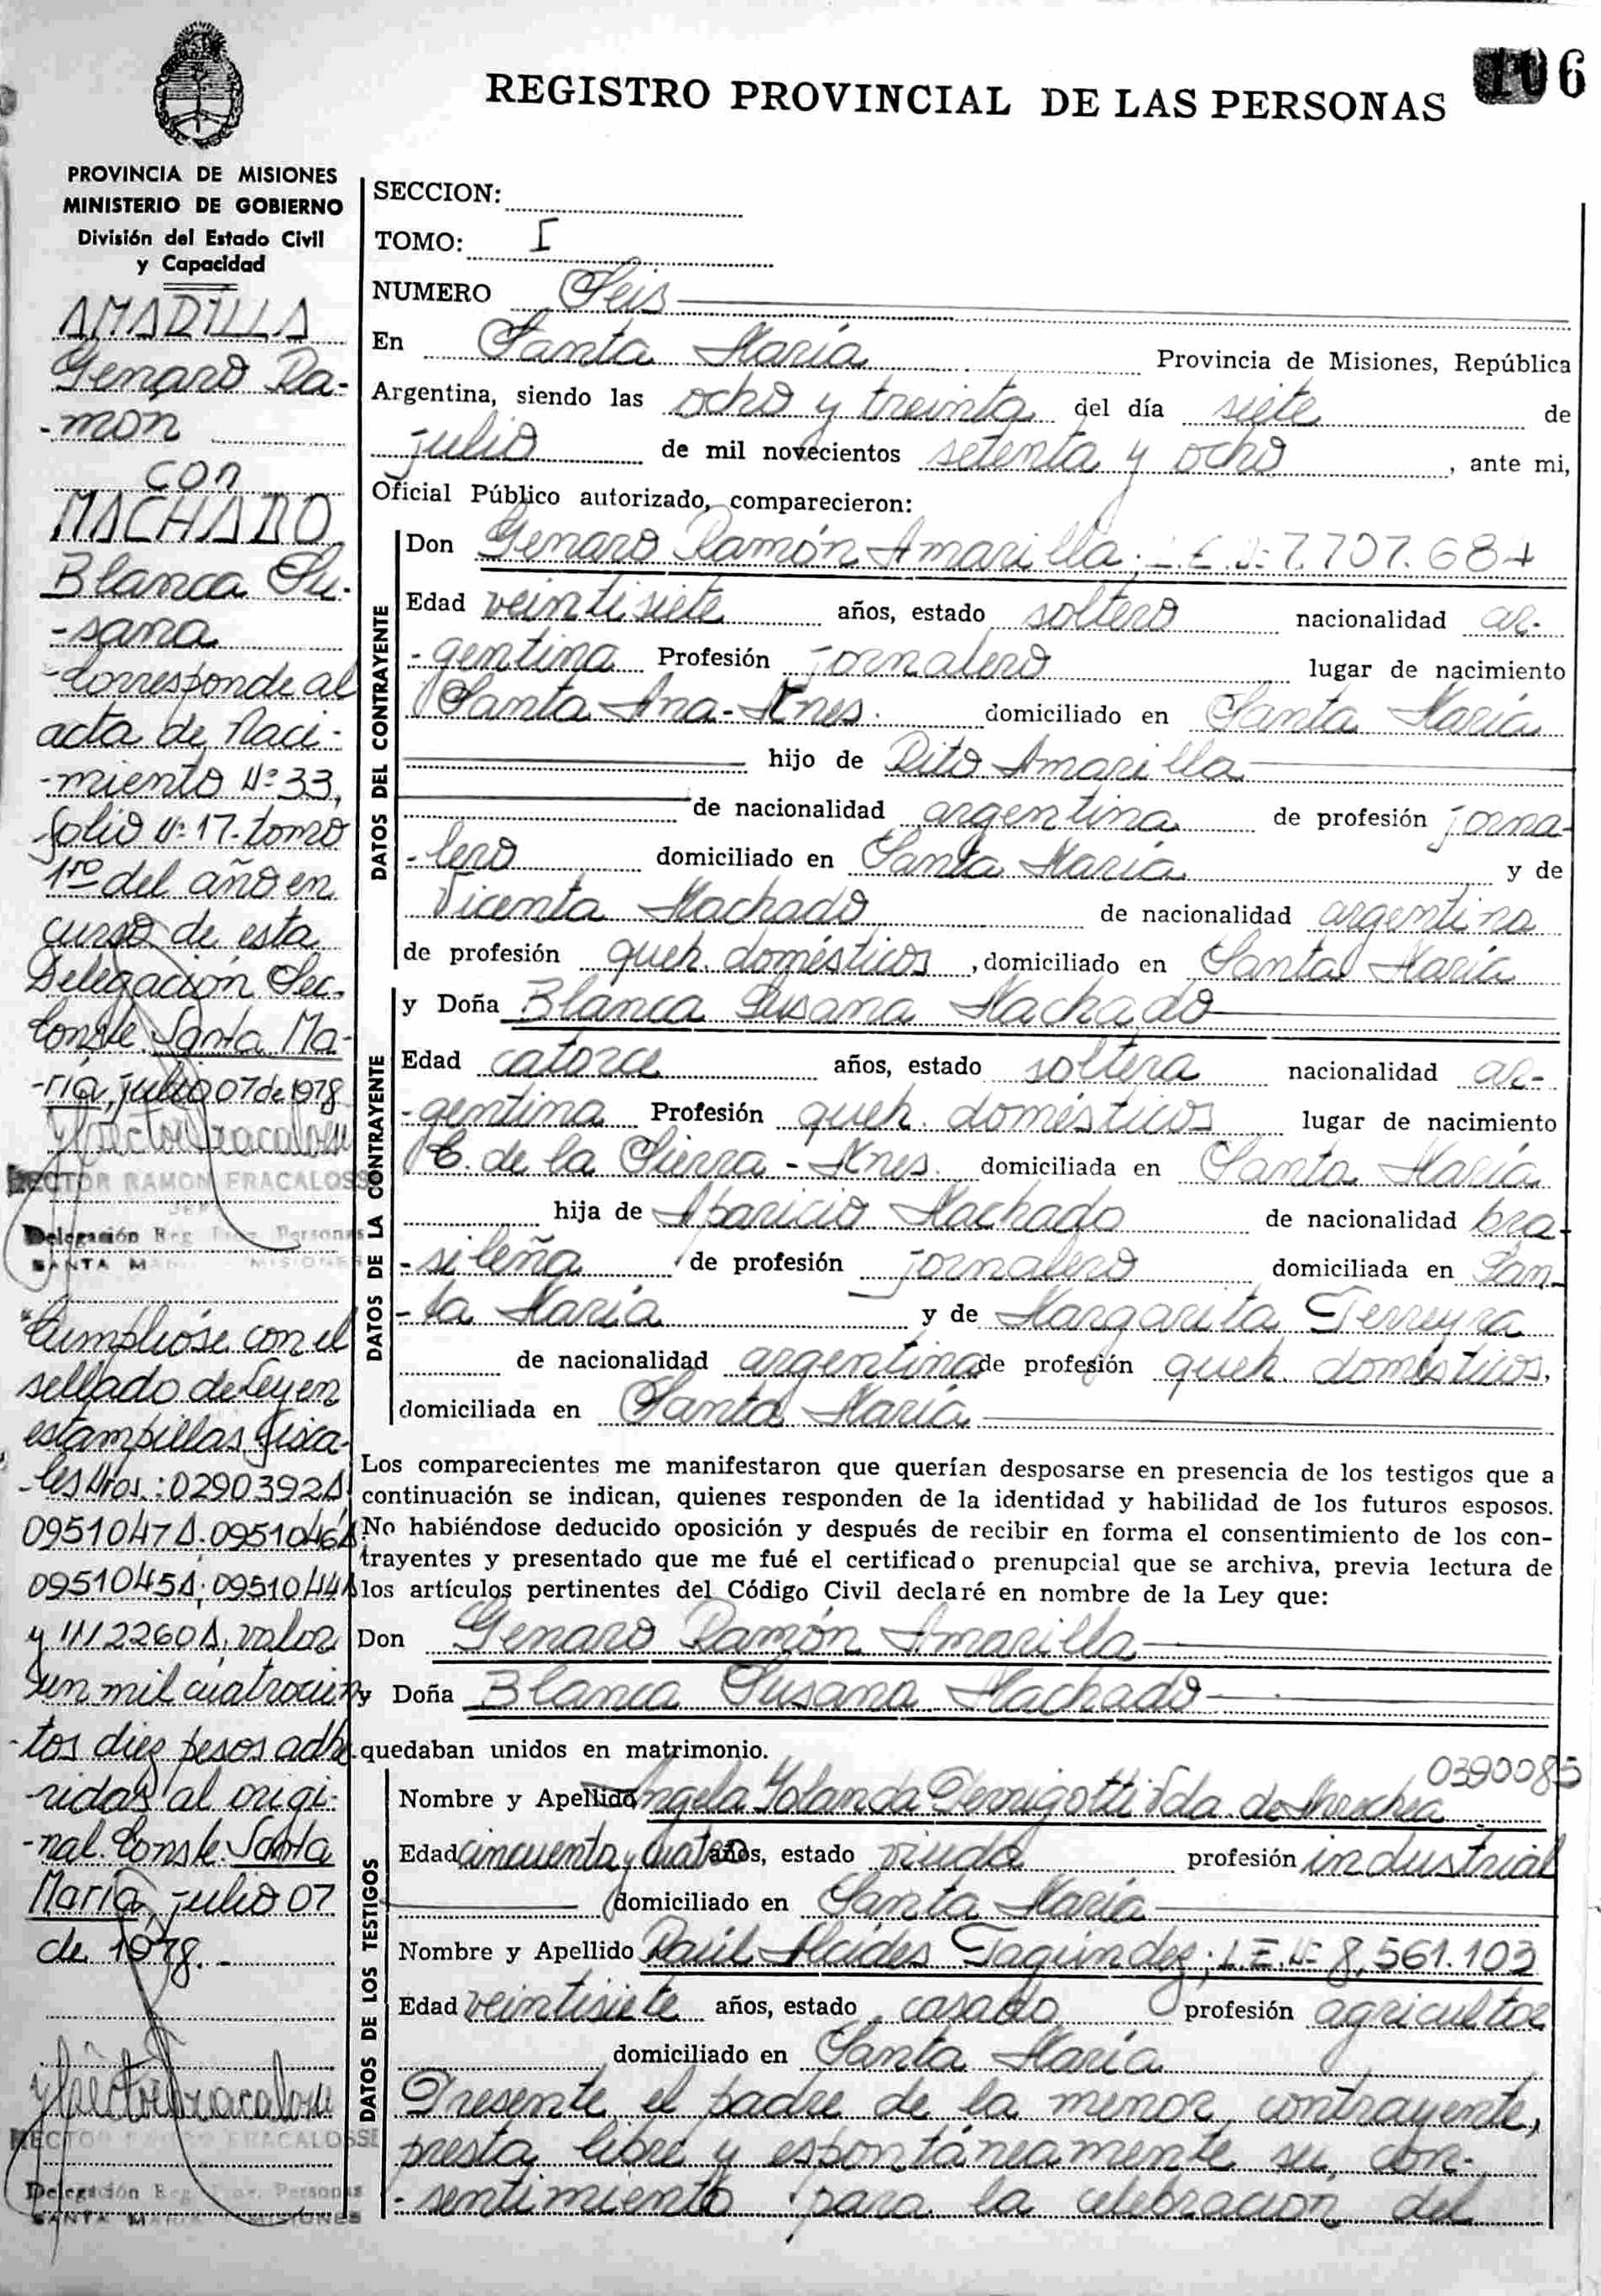 REGISTRO PROVINCIAL DE LAS PERSONAS
106
PROVINCIA DE MISIONES
MINISTERIO DE GOBIERNO
División del Estado Civil
y Capacidad
AMARILLA
Genaro Ra-
-mon
con
MACHADO
Blanca Su-
-sana
-Corresponde al
acta de Naci-
-miento Nº 33,
folio Nº 17-tomo
1ro del año en
curso de esta
Delegación Sec.
Conste. Santa Ma-
-ría, julio 07 de 1978
HECTOR RAMON FRACALOSSI
JEFE
Delegación Reg. Prov. Personas
SANTA MARIA - MISIONES
"Cumplióse con el
sellado de Ley en
estampillas fisca-
-les Nros.: 0290392A
0951047A; 0951046A
0951045A; 0951044A
y 1112260A, valor
un mil cuatrocien-
-tos diez pesos adhe-
-ridas al origi-
-nal. Conste. Santa
María, julio 07
de 1978.-
HECTOR RAMON FRACALOSSI
Delegación Reg. Prov. Personas
SANTA MARIA MISIONES
SECCION:
TOMO: I
NUMERO Seis
En Santa María Provincia de Misiones, República
Argentina, siendo las ocho y treinta del día siete de
julio de mil novecientos setenta y ocho, ante mi,
Oficial Público autorizado, comparecieron:
DATOS DEL CONTRAYENTE
Don Genaro Ramón Amarilla; L.E.Nº 7.707.684
Edad veintisiete años, estado soltero nacionalidad ar-
-gentina Profesión jornalero lugar de nacimiento
Santa Ana-Mnes. domiciliado en Santa María
hijo de Rito Amarilla
de nacionalidad argentina de profesión jorna-
-lero domiciliado en Santa María y de
Vicenta Machado de nacionalidad argentina
de profesión queh. domésticos, domiciliado en Santa María
DATOS DE LA CONTRAYENTE
y Doña Blanca Susana Machado
Edad catorce años, estado soltera nacionalidad ar-
-gentina Profesión queh. domésticos lugar de nacimiento
C. de la Sierra - Mnes. domiciliada en Santa María
hija de Aparicio Machado de nacionalidad bra-
-sileña de profesión jornalero domiciliada en San-
-ta María y de Margarita Ferreyra
de nacionalidad argentina de profesión queh. domésticos,
domiciliada en Santa María
Los comparecientes me manifestaron que querían desposarse en presencia de los testigos que a
continuación se indican, quienes responden de la identidad y habilidad de los futuros esposos.
No habiéndose deducido oposición y después de recibir en forma el consentimiento de los con-
trayentes y presentado que me fué el certificado prenupcial que se archiva, previa lectura de
los artículos pertinentes del Código Civil declaré en nombre de la Ley que:
Don Genaro Ramón Amarilla
y Doña Blanca Susana Machado
quedaban unidos en matrimonio.
0390085
DATOS DE LOS TESTIGOS
Nombre y Apellido Angela Yolanda Vda. de
Edad cincuenta y cuatro años, estado viuda profesión industrial
domiciliado en Santa María
Nombre y Apellido Raúl Alcides Fagúndez; L.E.Nº 8.561.103
Edad veintisiete años, estado casado profesión agricultor
domiciliado en Santa María
Presente el padre de la menor contrayente,
presta libre y espontáneamente su con-
-sentimiento para la celebración del